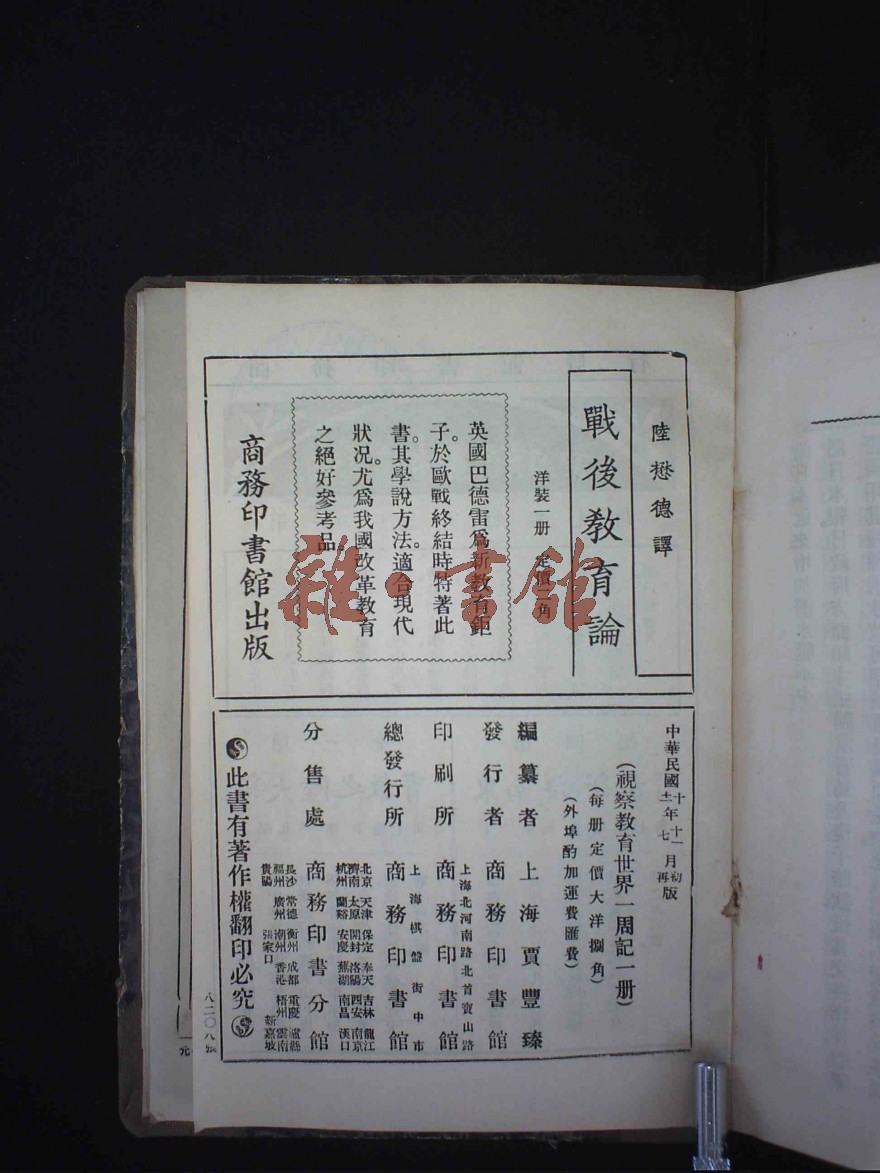 陸懋德譯
戰後教育論
洋裝一册 定價二角
英國巴德雷爲新教育鉅
子。於歐戰終結時特著此
書。其學說方法。適合現代
狀况。尤爲我國改革教育
之絕好參考品。
商務印書館出版
雜·書館
中華民國
十年十一月初版
十二年七月再版
(視察教育世界一周記一册)
(每册定價大洋捌角)
(外埠酌加運費匯費)
編纂者 上海賈豐臻
發行者 商務印書館
上海北河南路北首寶山路
印刷所 商務印書館
上海棋盤街中市
總發行所 商務印書館
北京 天津 保定 奉天 吉林 龍江
濟南 太原 開封 洛陽 西安 南京
杭州 蘭谿 安慶 蕪湖 南昌 漢口
分售處 商務印書分館
長沙 常德 衡州 成都 重慶 瀘縣
福州 廣州 潮州 香港 梧州 雲南
貴陽 張家口 新嘉坡
此書有著作權翻印必究
八二〇八張
元